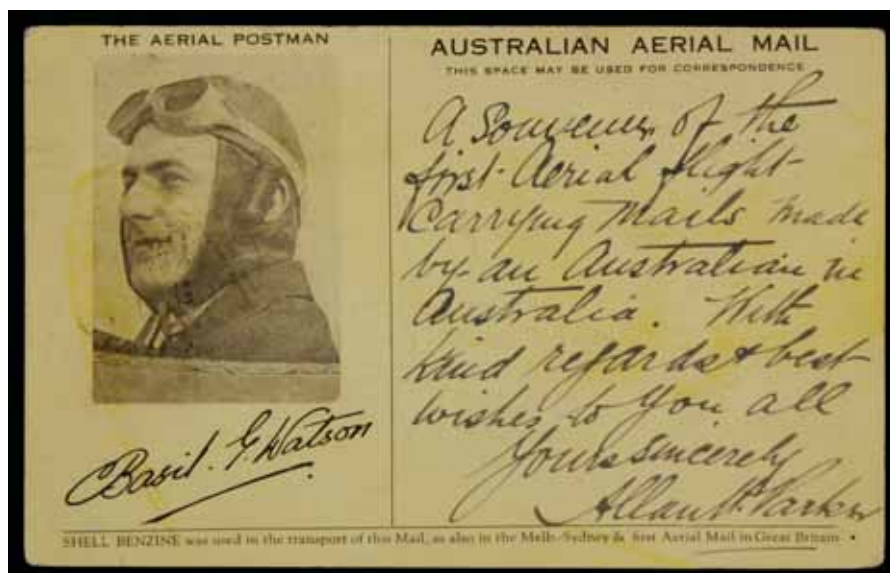 THE AERIAL POSTMAN
Basil. G. Watson
AUSTRALIAN AERIAL MAIL
THIS SPACE MAY BE USED FOR CORRESPONDENCE
A Souvenir of the
first Aerial flight
Carrying Mails made
by an Australian in
Australia. With
kind regards & best
wishes to you all
Yours sincerely
Allan Parker
SHELL BENZINE was used in the transport of this Mail, as also in the Melb-Sydney & first Aerial Mail in Great Britain